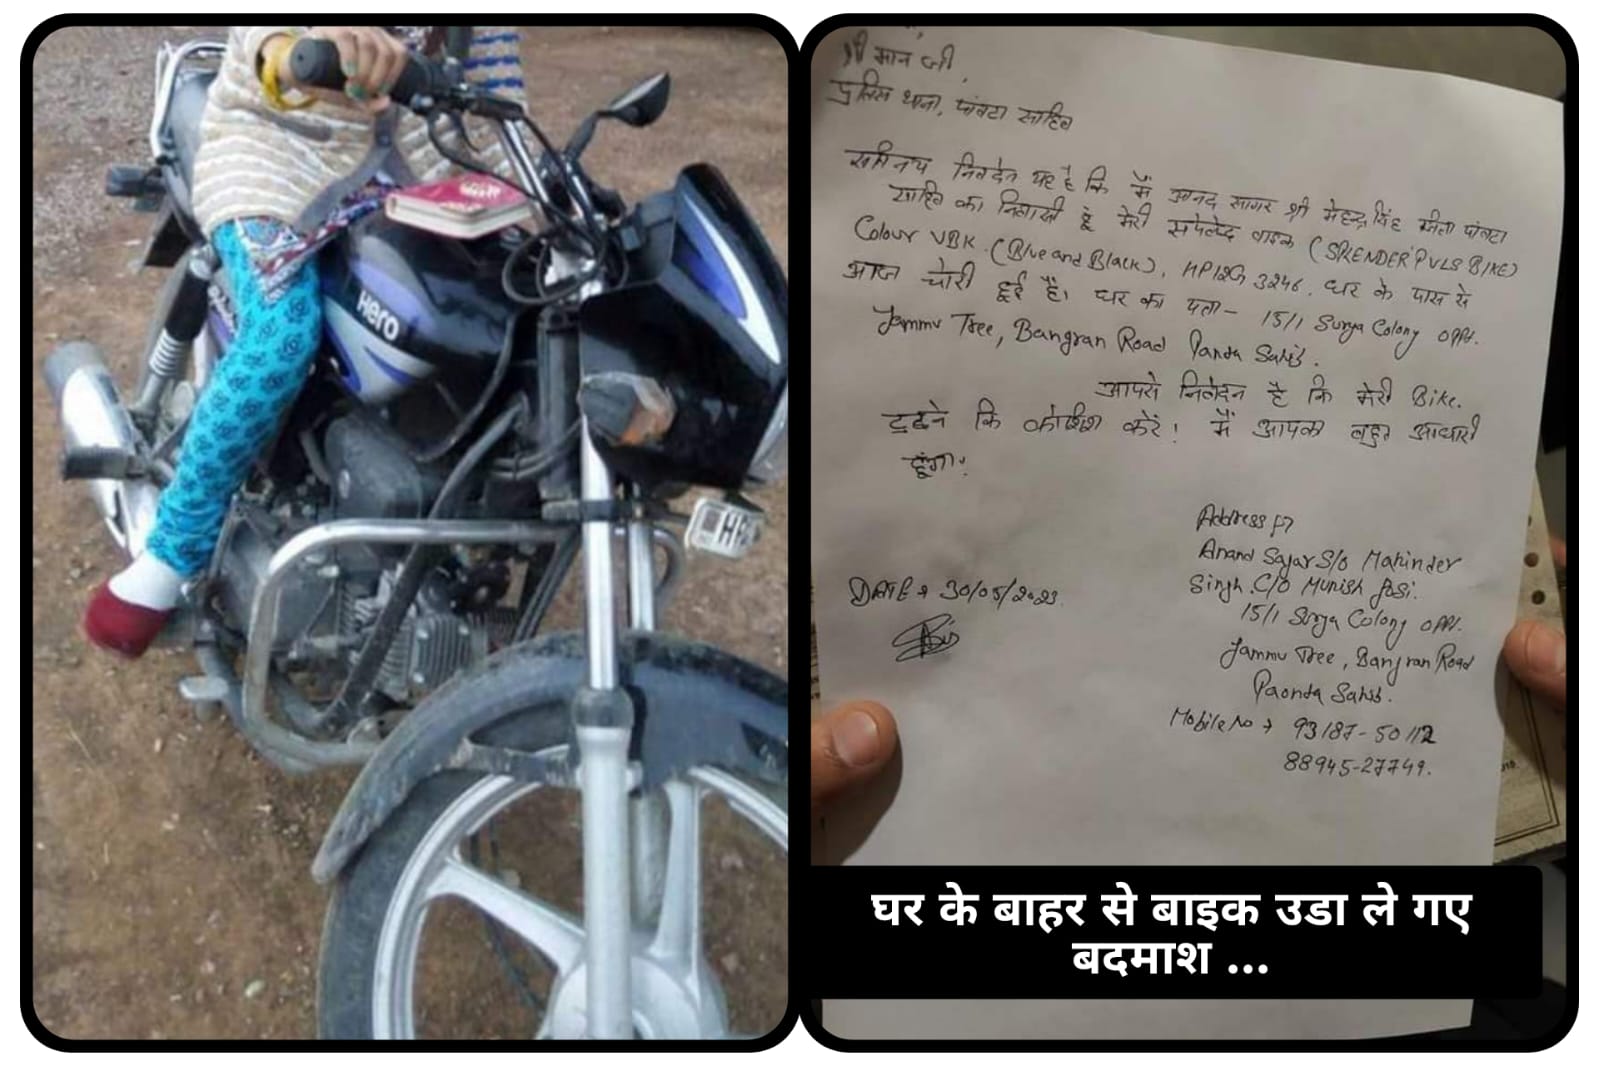 Hero
HP
श्री मान जी,
पुलिस थाना, पांवटा साहिब
सविनय निवेदन यह है कि मैं आनंद सागर श्री मेहन्द्र सिंह पांवटा
साहिब का निवासी हूं मेरी सपेलेंडर बाइक (SPLENDER PULS BIKE)
Colour VBK. (Blue and Black), HP12G 3246. घर के पास से
आज चोरी हुई है। घर का पता- 15/1 Surya Colony opp.
Jammu Tree, Bangran Road Paonta Sahib.
आपसे निवेदन है कि मेरी Bike.
ढूढने कि कोशिश करें! मैं आपका बहुत आभारी
हूंगा!
Address
Anand Sagar S/o Mahinder
Singh. C/o Munish
15/1 Surya Colony opp.
Jammu Tree, Bangran Road
Paonta Sahib.
DATE → 30/05/2023.
Mobile No → 93187-50112
88945-27749.
घर के बाहर से बाइक उडा ले गए
बदमाश ...